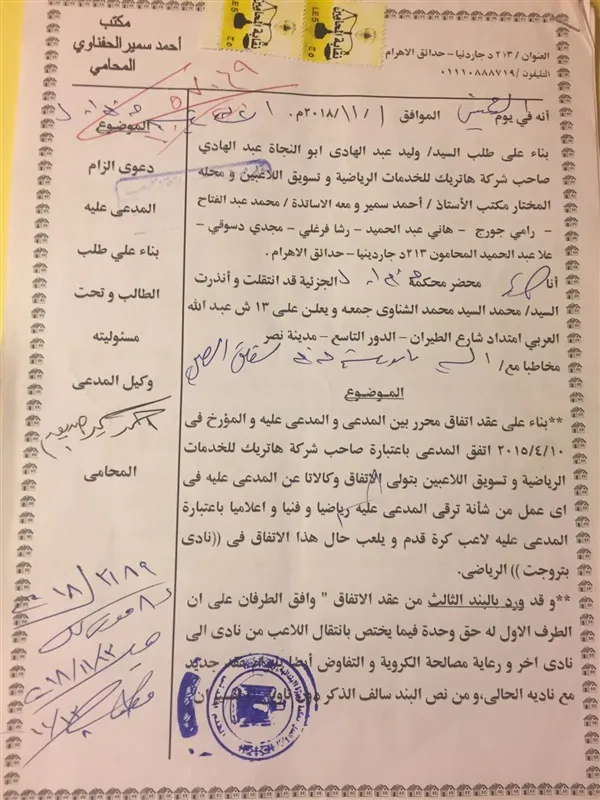 مكتب
أحمد سمير الحفناوي
المحامي
نقابة المحامين
LE5
£5
نقابة المحامين
LE5
£5
العنوان / ٢١٣ د جاردنيا - حدائق الاهرام
التليفون / ٠١١١٠٨٨٨٧١٩
أنه في يوم الموافق ١/١١/٢٠١٨م.
بناء على طلب السيد/ وليد عبد الهادى ابو النجاة عبد الهادي
صاحب شركة هاتريك للخدمات الرياضية و تسويق اللاعبين و محله
المختار مكتب الأستاذ / أحمد سمير و معه الاساتذة / محمد عبد الفتاح
- رامي جورج - هاني عبد الحميد - رشا فرغلي - مجدي دسوقي -
علا عبد الحميد المحامون ٢١٣د جاردينيا - حدائق الاهرام .
أنا محضر محكمة الجزئية قد انتقلت و أنذرت
السيد/ محمد السيد محمد الشناوى جمعه و يعلن على ١٣ ش عبد الله
العربي امتداد شارع الطيران - الدور التاسع - مدينة نصر
مخاطبا مع/
الموضوع
**بناء على عقد اتفاق محرر بين المدعى و المدعى عليه و المؤرخ فى
٢٠١٥/٤/١٠ اتفق المدعى باعتبارة صاحب شركة هاتريك للخدمات
الرياضية و تسويق اللاعبين بتولى الاتفاق وكالاتا عن المدعى عليه فى
اى عمل من شأنة ترقى المدعى عليه رياضيا و فنيا و اعلاميا باعتبارة
المدعى عليه لاعب كرة قدم و يلعب حال هذا الاتفاق فى ((نادى
بتروجت )) الرياضي.
**و قد ورد بالبند الثالث من عقد الاتفاق " وافق الطرفان على ان
الطرف الاول له حق وحدة فيما يختص بانتقال اللاعب من نادى الى
نادى اخر و رعاية مصالحة الكروية و التفاوض أيضا جديد
مع ناديه الحالى،و من نص البند سالف الذكر
الموضوع
دعوى الزام
المدعى عليه
بناء علي طلب
الطالب و تحت
مسئوليته
وكيل المدعى
المحامى